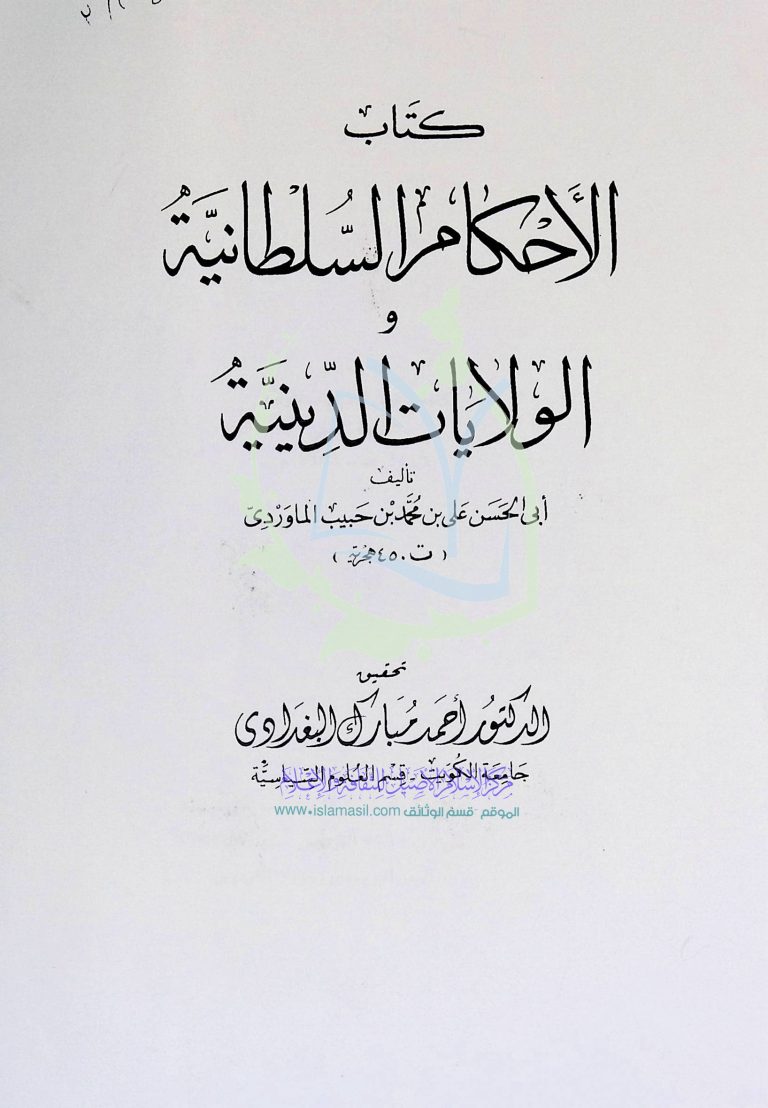 كتاب
الأحكام السلطانية
و
الولايات الدينية
تأليف
أبي الحسن علي بن محمد بن حبيب الماوردي
(ت ٤٥٠ هجرية)
تحقيق
الدكتور أحمد مبارك البغدادي
جامعة الكويت - قسم العلوم السياسية
مركز الإسلام الأصيل للثقافة والإعلام
الموقع - قسم الوثائق www.islamasil.com